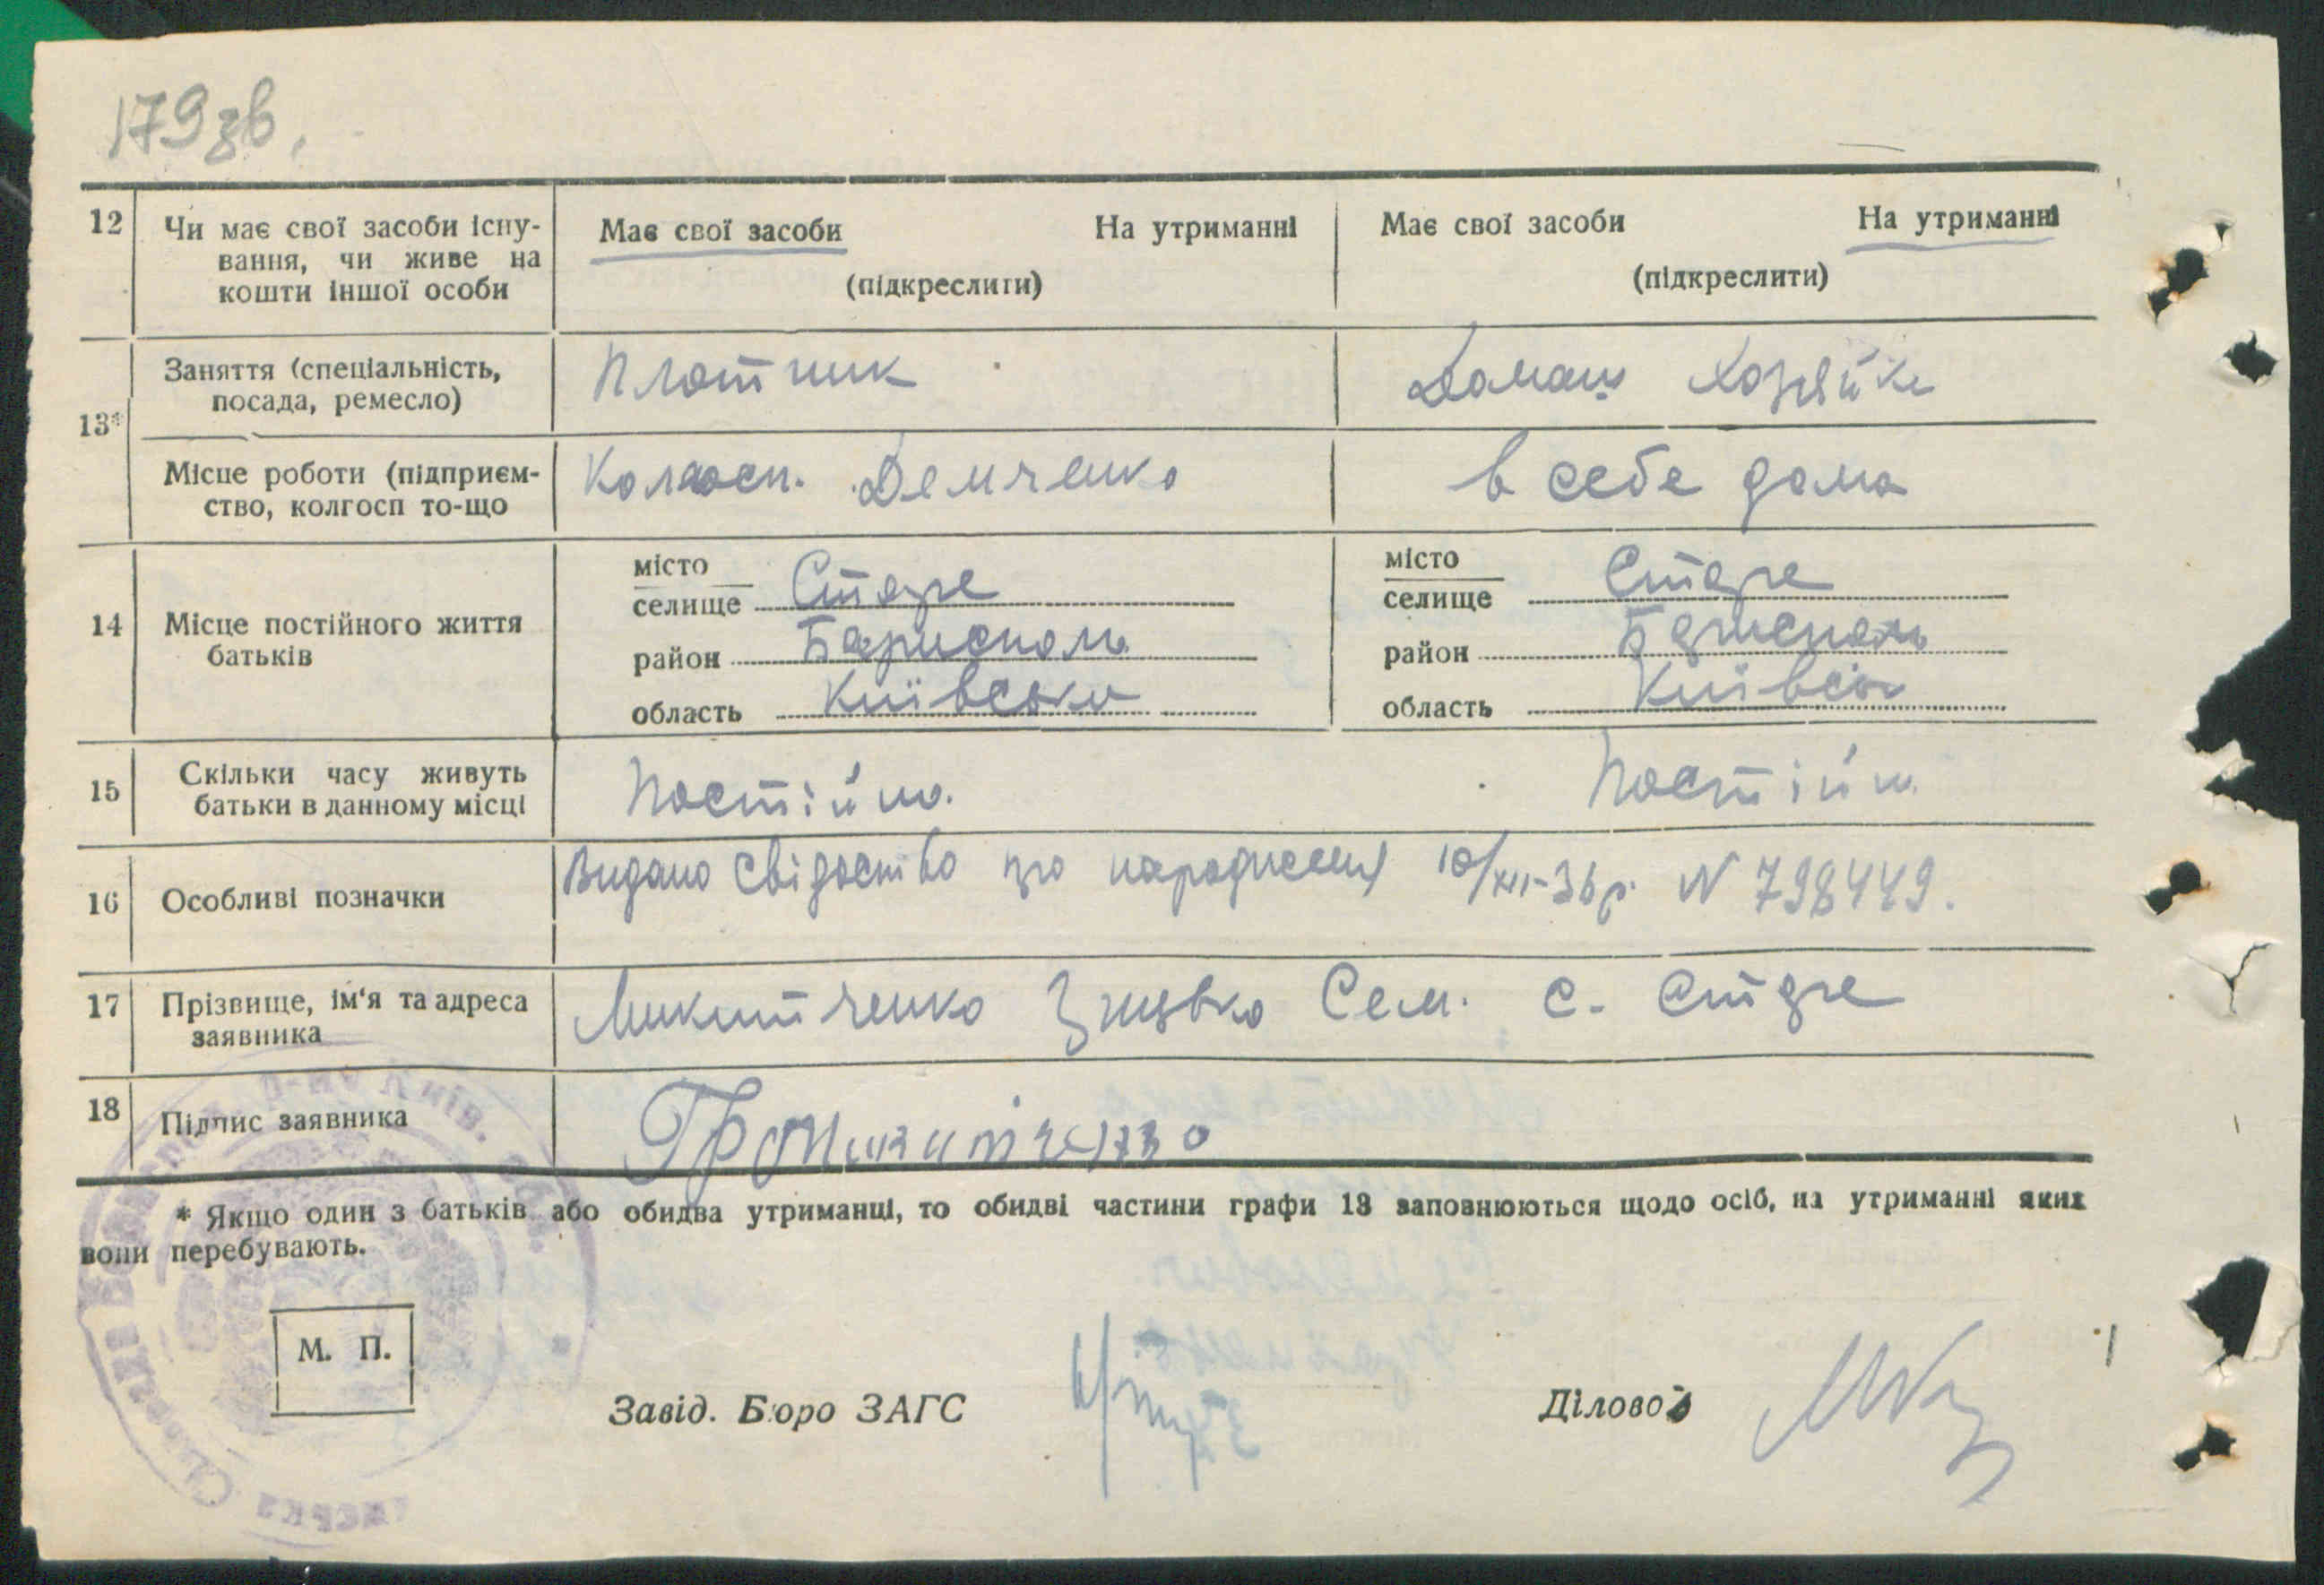 179зв.
12 Чи має свої засоби існу-
вання, чи живе на
кошти іншої особи
Має свої засоби На утриманні
(підкреслити)
Має свої засоби На утриманні
(підкреслити)
13*
Заняття (спеціальність,
посада, ремесло)
Плотник
Домаш Хозяйка
Місце роботи (підприєм-
ство, колгосп то-що
Колгосп. Демченко
в себе дома
14 Місце постійного життя
батьків
місто
селище Старе
район Бориспол
область Київська
місто
селище Старе
район Бориспол
область Київськ
15 Скільки часу живуть
батьки в данному місці
Постійно.
Постійно
16 Особливі позначки
Видано Свідоство про народження 10/XII-36р. N 798449.
17 Прізвище, ім'я та адреса
заявника
Микитченко Сем. с. Старе
18 Підпис заявника
* Якщо один з батьків або обидва утриманці, то обидві частини графи 13 заповнюються щодо осіб, на утриманні яких
вони перебувають.
М. П.
Завід. Бюро ЗАГС
Діловод